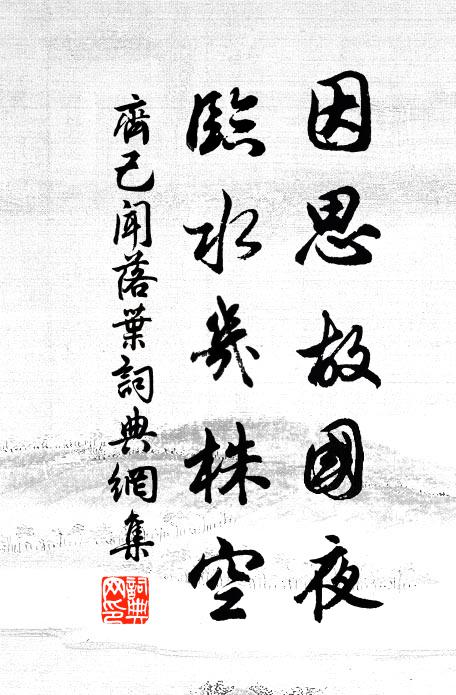 因思故國夜
臨水幾株空
齊己聞落葉詞典網集
詞典
網印